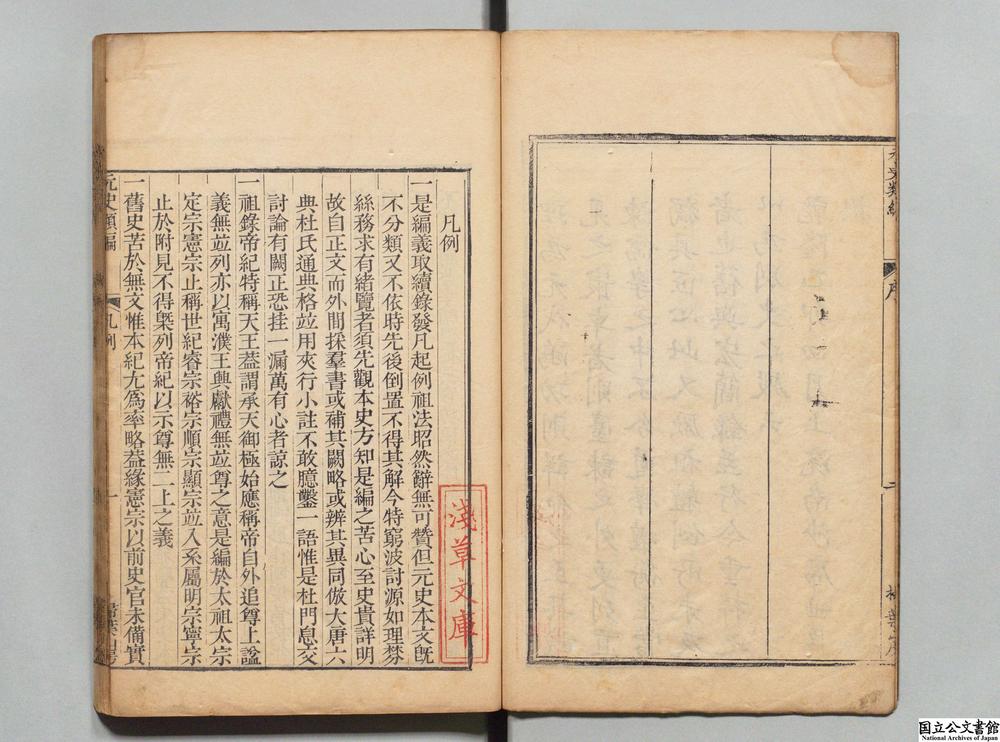 元史類編
序
掃葉山房
凡例
一是編義取續錄發凡起例祖法昭然辭無可贊但元史本文旣
不分類又不依時先後倒置不得其解今特窮波討源如理棼
絲務求有緒覽者須先觀本史方知是編之苦心至史貴詳明
故自正文而外間採羣書或補其闕略或辨其異同倣大唐六
典杜氏通典格竝用夾行小註不敢臆鑿一語惟是杜門息交
討論有闕正恐挂一漏萬有心者諒之
一祖錄帝紀特稱天王葢謂承天御極始應稱帝自外追尊上謚
義無竝列亦以寓濮王興獻禮無竝尊之意是編於太祖太宗
定宗憲宗止稱世紀睿宗裕宗順宗顯宗竝入系屬明宗寧宗
止於附見不得槩列帝紀以示尊無二上之義
一舊史苦於無文惟本紀尢爲率略葢緣憲宗以前史官未備實
元史類編
凡例
一
掃葉山房
淺草文庫
国立公文書館
National Archives of Japan